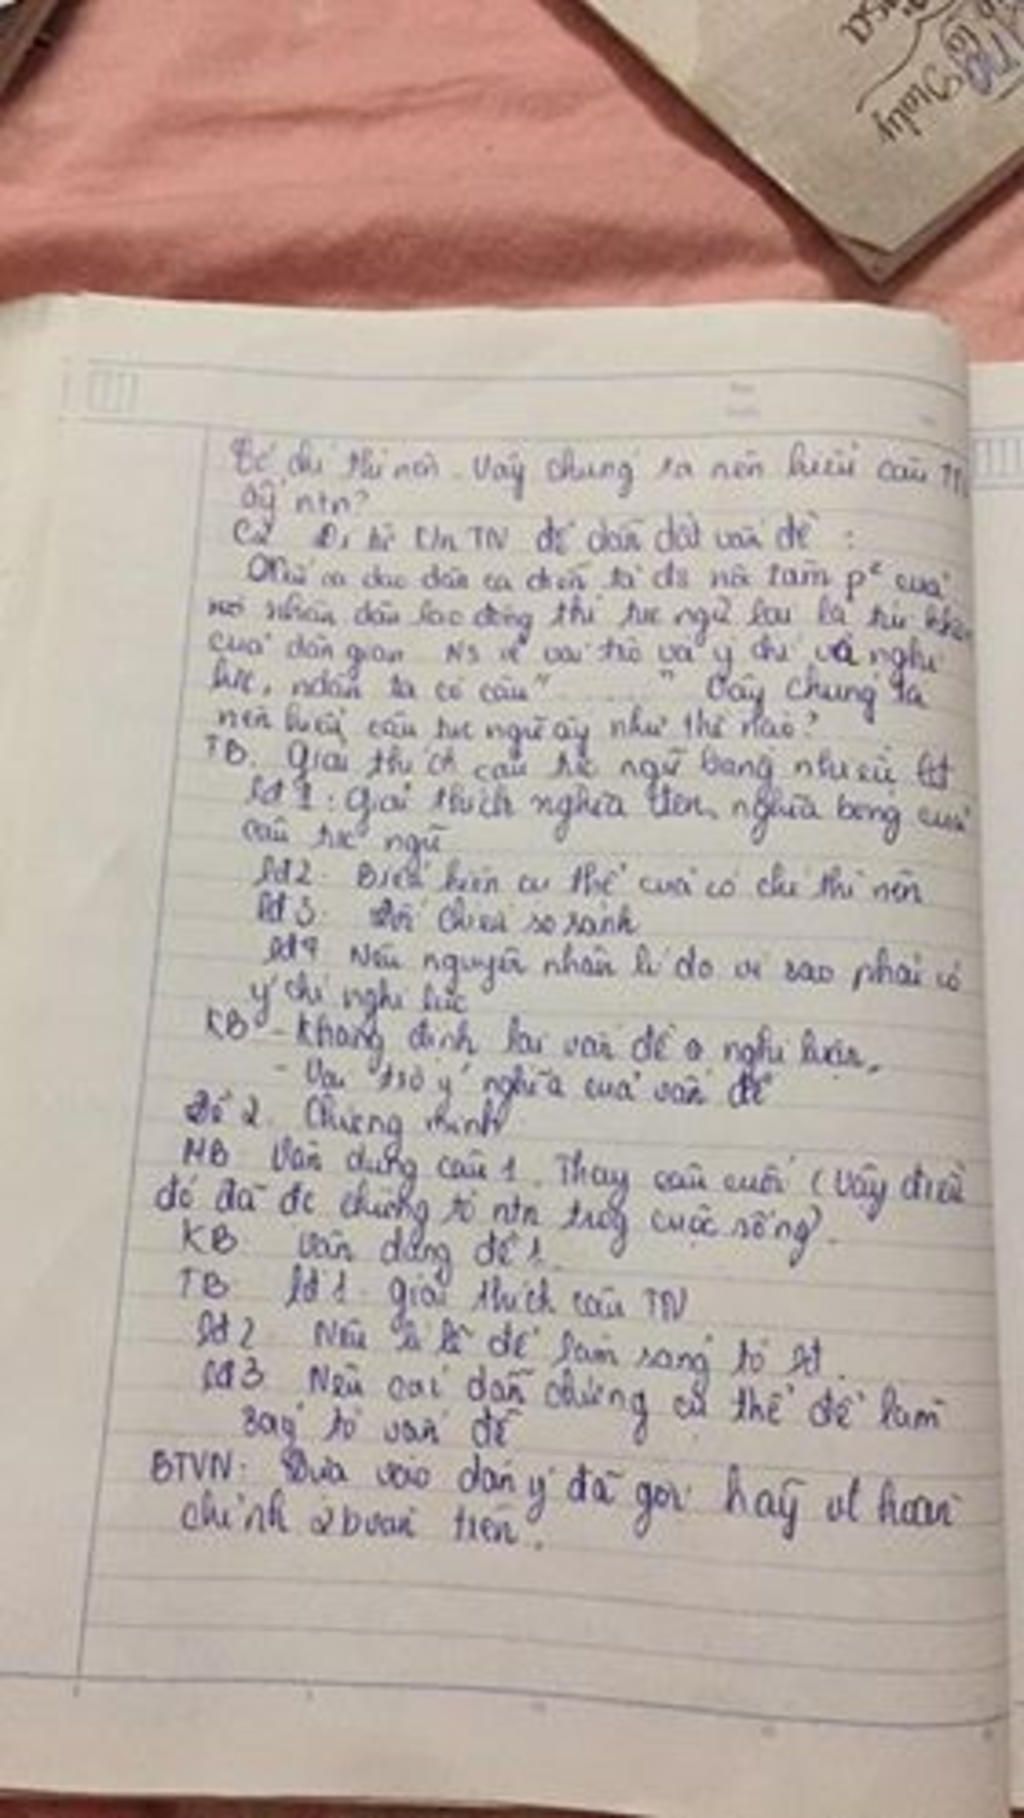 study
có chí thì nên. Vậy chúng ta nên hiểu câu TN
ấy ntn?
C2 Đi từ TN để dẫn dắt vấn đề:
ca dao dân ca ta
nhân dân lao động thì tục ngữ lại là
của dân gian N3 về vai trò và ý chí và nghị
lực, ndân ta có câu "........" Vậy chúng ta
nên hiểu câu tục ngữ ấy như thế nào?
TB. Giải thích câu tục ngữ bằng nhiều lđ
lđ1: Giải thích nghĩa đen, nghĩa bóng của
câu tục ngữ
lđ2: Biểu hiện cụ thể của có chí thì nên
lđ3: Đối chiếu so sánh
lđ4 Nêu nguyên nhân lí do vì sao phải có
ý chí nghị lực
KB - Khẳng định lại vấn đề nghị luận.
- Vai trò ý nghĩa của vấn đề
Đề 2. Chứng minh
MB Vận dụng câu 1. Thay câu cuối (Vậy điều
đó đã đc chứng tỏ ntn trog cuộc sống).
KB Vận dụng đề 1.
TB lđ1. giải thích câu TN
lđ2 Nêu lí lẽ để làm sáng tỏ lđ.
lđ3 Nêu cái dẫn chứng cụ thể để làm
ság tỏ vấn đề
BTVN: Dựa vào dàn ý đã gợi hãy vt hoàn
chỉnh 2 bvăn trên.